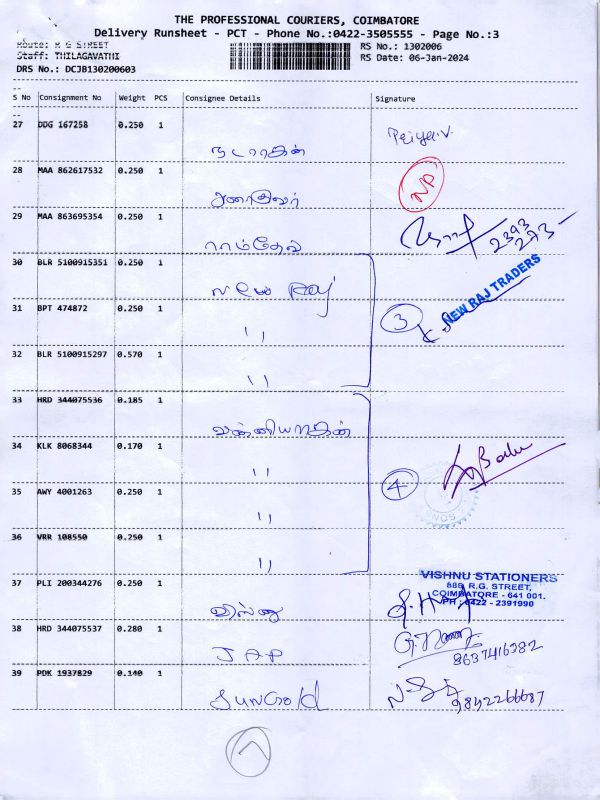 THE PROFESSIONAL COURIERS, COIMBATORE
Delivery Runsheet - PCT - Phone No.:0422-3505555 - Page No.:3
Route: R G STREET
Staff: THILAGAVATHI
DRS No.: DCJB130200603
RS No.: 1302006
RS Date: 06-Jan-2024
S No Consignment No Weight PCS Consignee Details Signature
27 DDG 167258 0.250 1 Priya.V
நடராஜன்
28 MAA 862617532 0.250 1 NP
29 MAA 863695354 0.250 1
ராம்தேவ் 2393
273
30 BLR 5100915351 0.250 1
New Raj
31 BPT 474872 0.250 1 3 NEW RAJ TRADERS
"
32 BLR 5100915297 0.570 1
"
33 HRD 344075536 0.185 1
34 KLK 8068344 0.170 1 Babu
"
35 AWY 4001263 0.250 1 4
"
36 VRR 108550 0.250 1
"
37 PLI 200344276 0.250 1
VISHNU STATIONERS
886, R.G. STREET,
COIMBATORE - 641 001.
PH : 0422 - 2391990
விஷ்ணு
38 HRD 344075537 0.280 1
JAP 8637416282
39 PDK 1937829 0.140 1
SunGold 9842266687